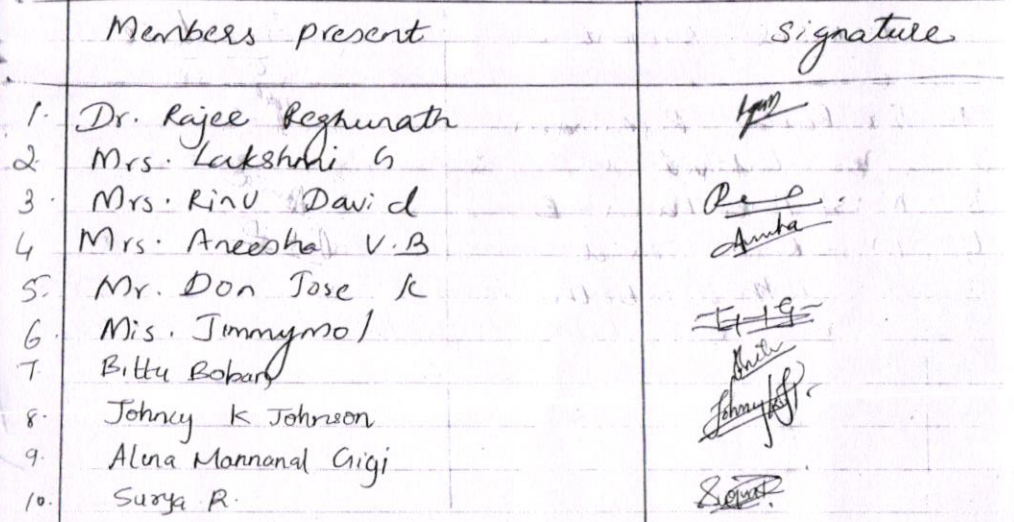 Members present Signature
1. Dr. Rajee Reghunath
2. Mrs. Lakshmi G
3. Mrs. Rinu David
4 Mrs. Aneesha V.B Anisha
5. Mr. Don Jose K
6. Mis. Jimmymol
7. Bittu Boban
8. Johncy K Johnson
9. Alena Mannanal Gigi
10. Surya R.